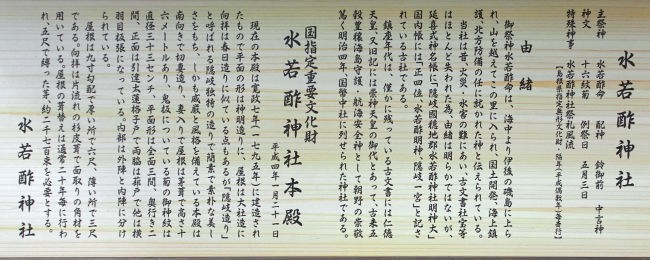 水若酢神社
主祭神 水若酢命 配神 鈴御前 中言神
神文 十六紋菊 例祭日 五月三日
特殊神事 水若酢神社祭礼風流
【島根県指定無形文化財・隔年(平成偶数年)毎斎行】
由緒
御祭神水若酢命は、海中より伊後の磯島に上ら
れ、山を越えてこの里に入られ、国土開発、海上鎮
護、北方防備の任に就かれた神と伝えられている。
当社は昔、火災、水害の難にあい、古文書社宝等
はほとんど失われた為、由緒は明らかではないが、
延喜式神名帳に「隠岐国穏地郡水若酢神社名神大」
国内帳には、「正四位上水若酢明神、隠岐一宮」と記さ
れている古社である。
鎮座年代は、僅かに残っている古文書には仁徳
天皇、又旧記には崇神天皇の御代とあって、古来五
穀豊穣海島守護、航海安全の神として朝野の崇敬
篤く明治四年、国幣中社に列せられた神社である。
国指定重要文化財
水若酢神社本殿
平成四年一月二十一日
現在の本殿は寛政七年(一七九五年)に建造され
たもので平面の形は神明造りに、屋根は大社造に
向拝は春日造りに似ている点もあるが「隠岐造り」
と呼ばれる隠岐独特の造りで簡素で素朴な美し
さをもち、しかも威厳と風格を備えている本殿は
南向きで切妻造り、妻入りで屋根は茅葺で高さ十
六メートルあり、鬼板についている菊の御神紋は
直径三十七センチ、平面形は全面三間、奥行き二
間、正面は引違太蓮格子戸で両脇は蔀戸で他は横
羽目板張になっている。内部は外陣と内陣に分け
られている。
屋根は九寸勾配で厚い所で六尺、薄い所で三尺
である。向拝は片流れの杉皮葺で面取りの角材を
用いている。屋根の葺替えは通常二十年毎に行わ
れ、五尺で縛った茅、約二千七百束を必要とする。
水若酢神社